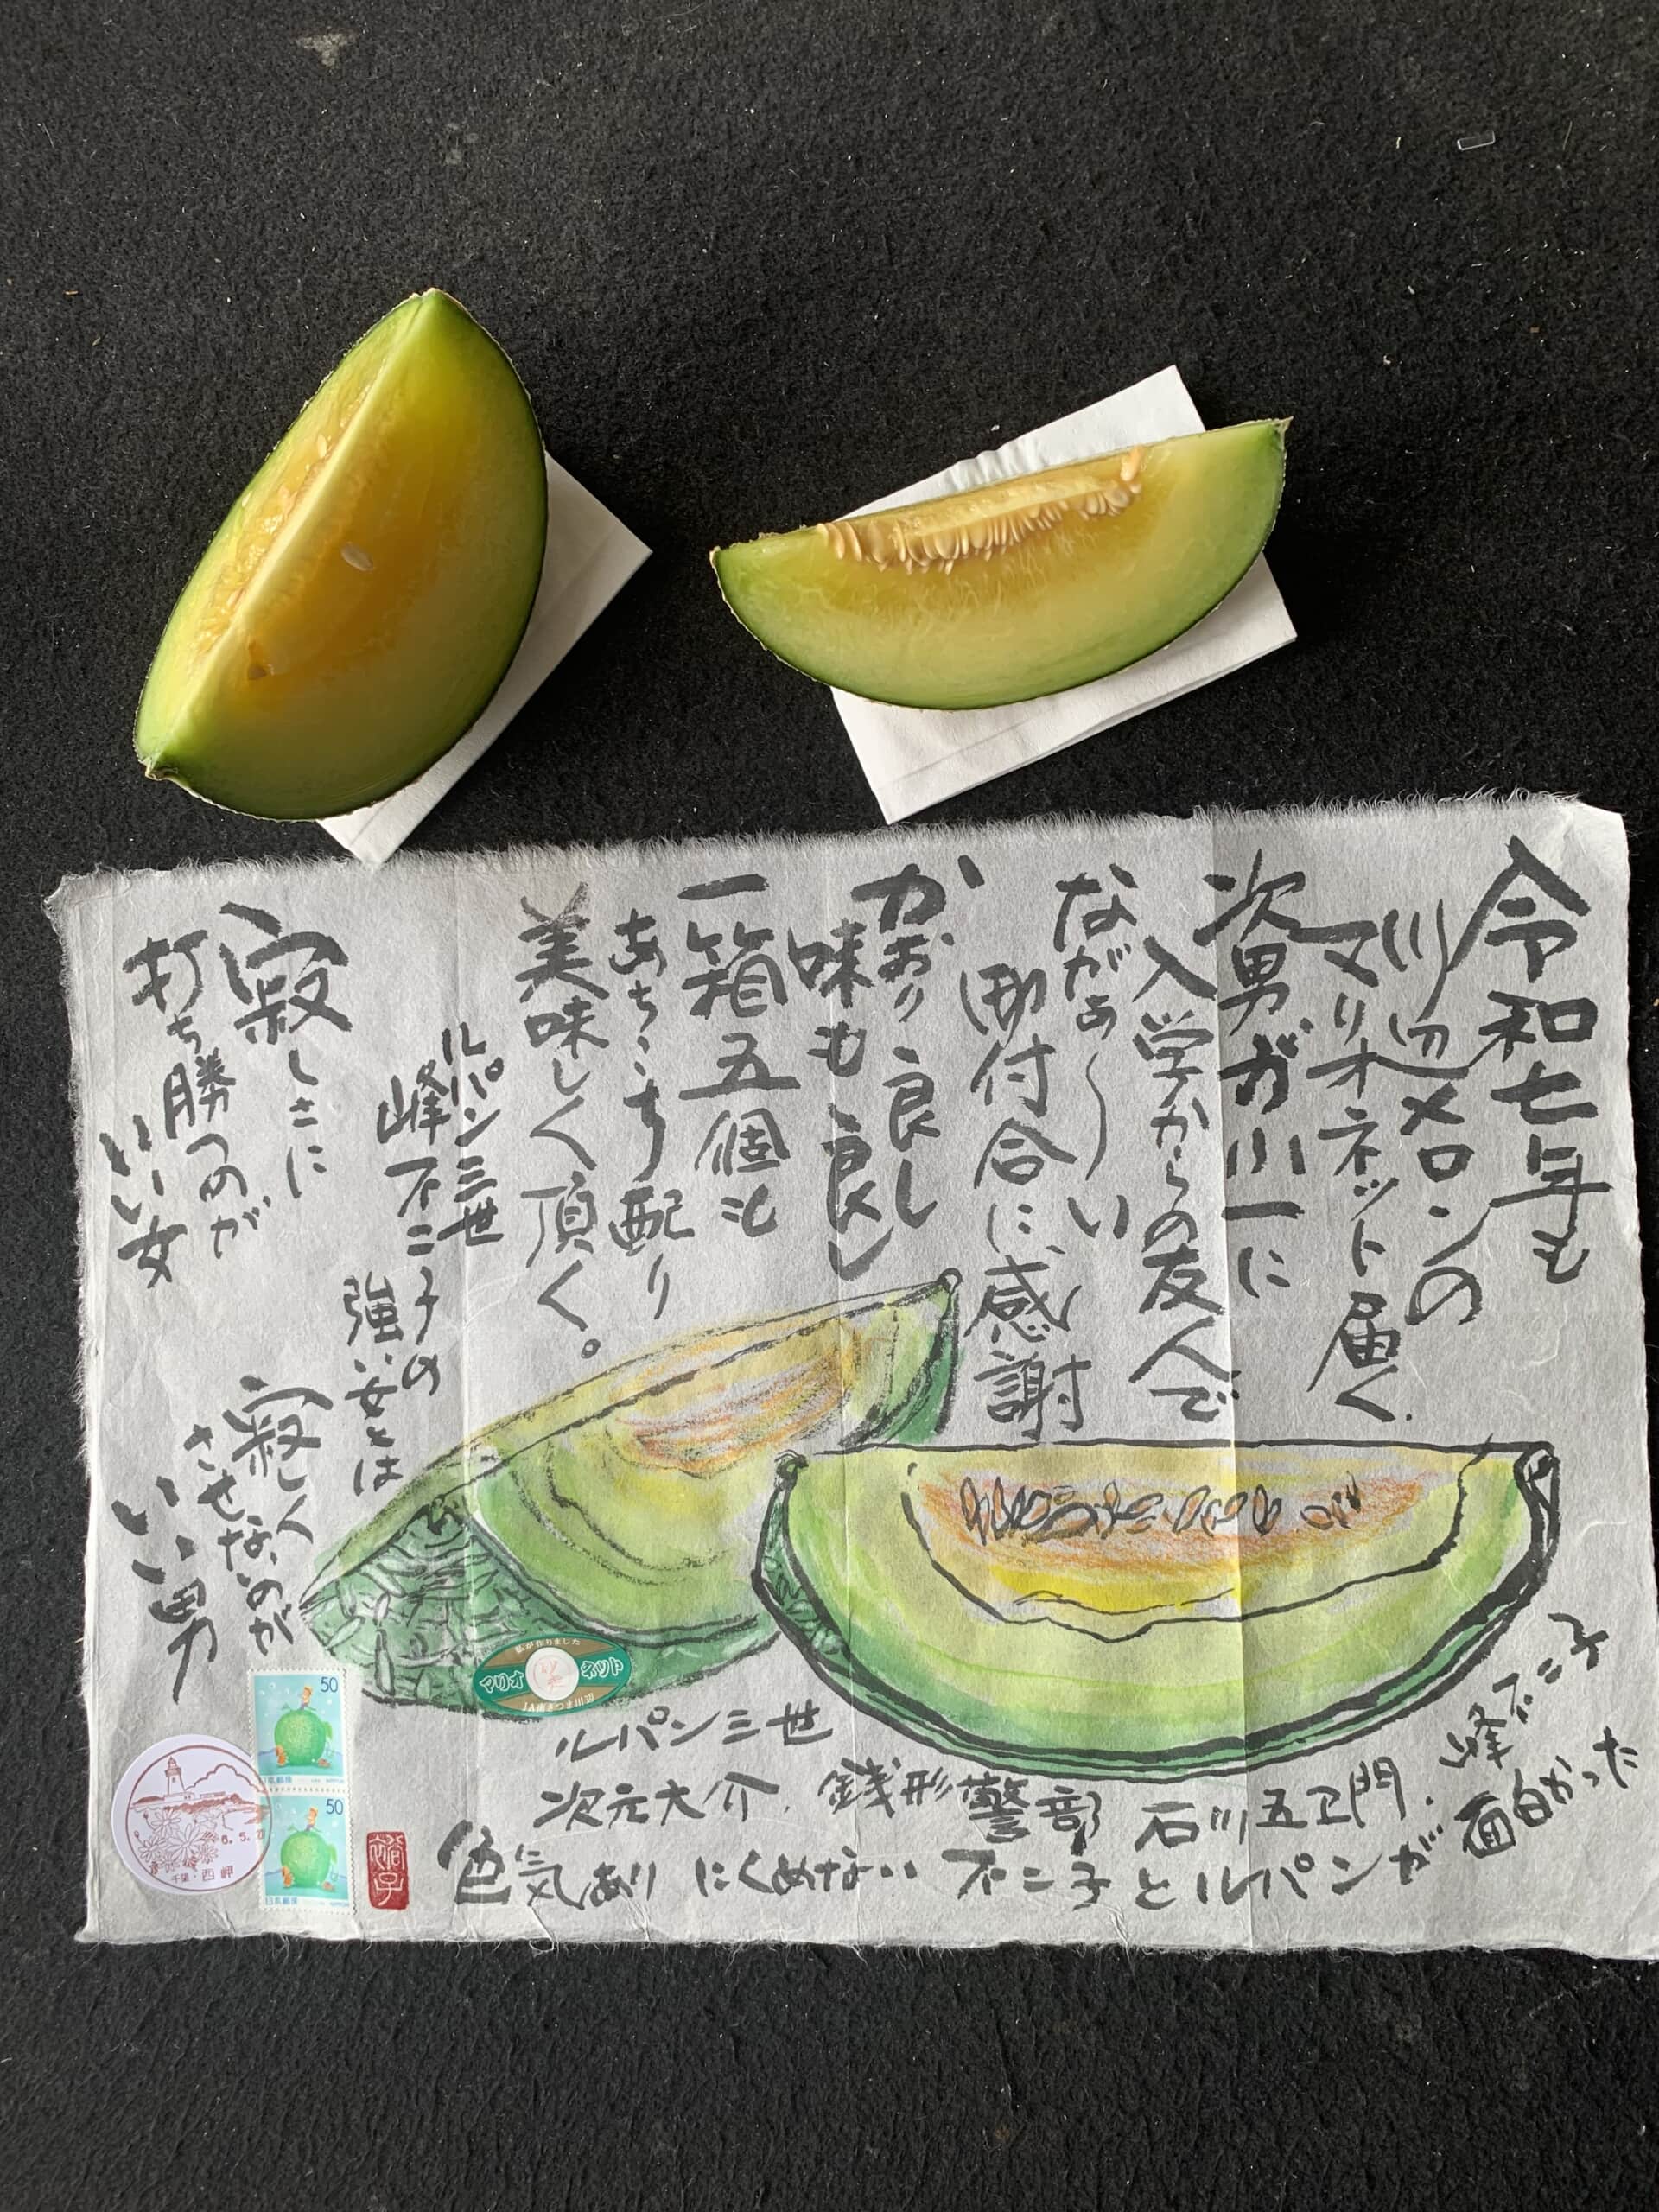 令和七年も
川辺メロンの
マリオネット届く.
次男が小一に
入学からの友人で
ながぁ〜い
御付合に感謝
かおり良し
味も良し
一箱五個も
あちこち配り
美味しく頂く。
ルパン三世
峰不二子の
強い女とは
寂しさに
打ち勝つのが
いい女
寂しく
させないのが
いい男
私が作りました
マリオネット
JA南さつま川辺
ルパン三世
次元大介. 銭形警部 石川五ヱ門. 峰不二子
色気あり にくめない 不二子とルパンが 面白かった
50
日本郵便 NIPPON
50
日本郵便 NIPPON
6.5.
千葉・西岬
裕子